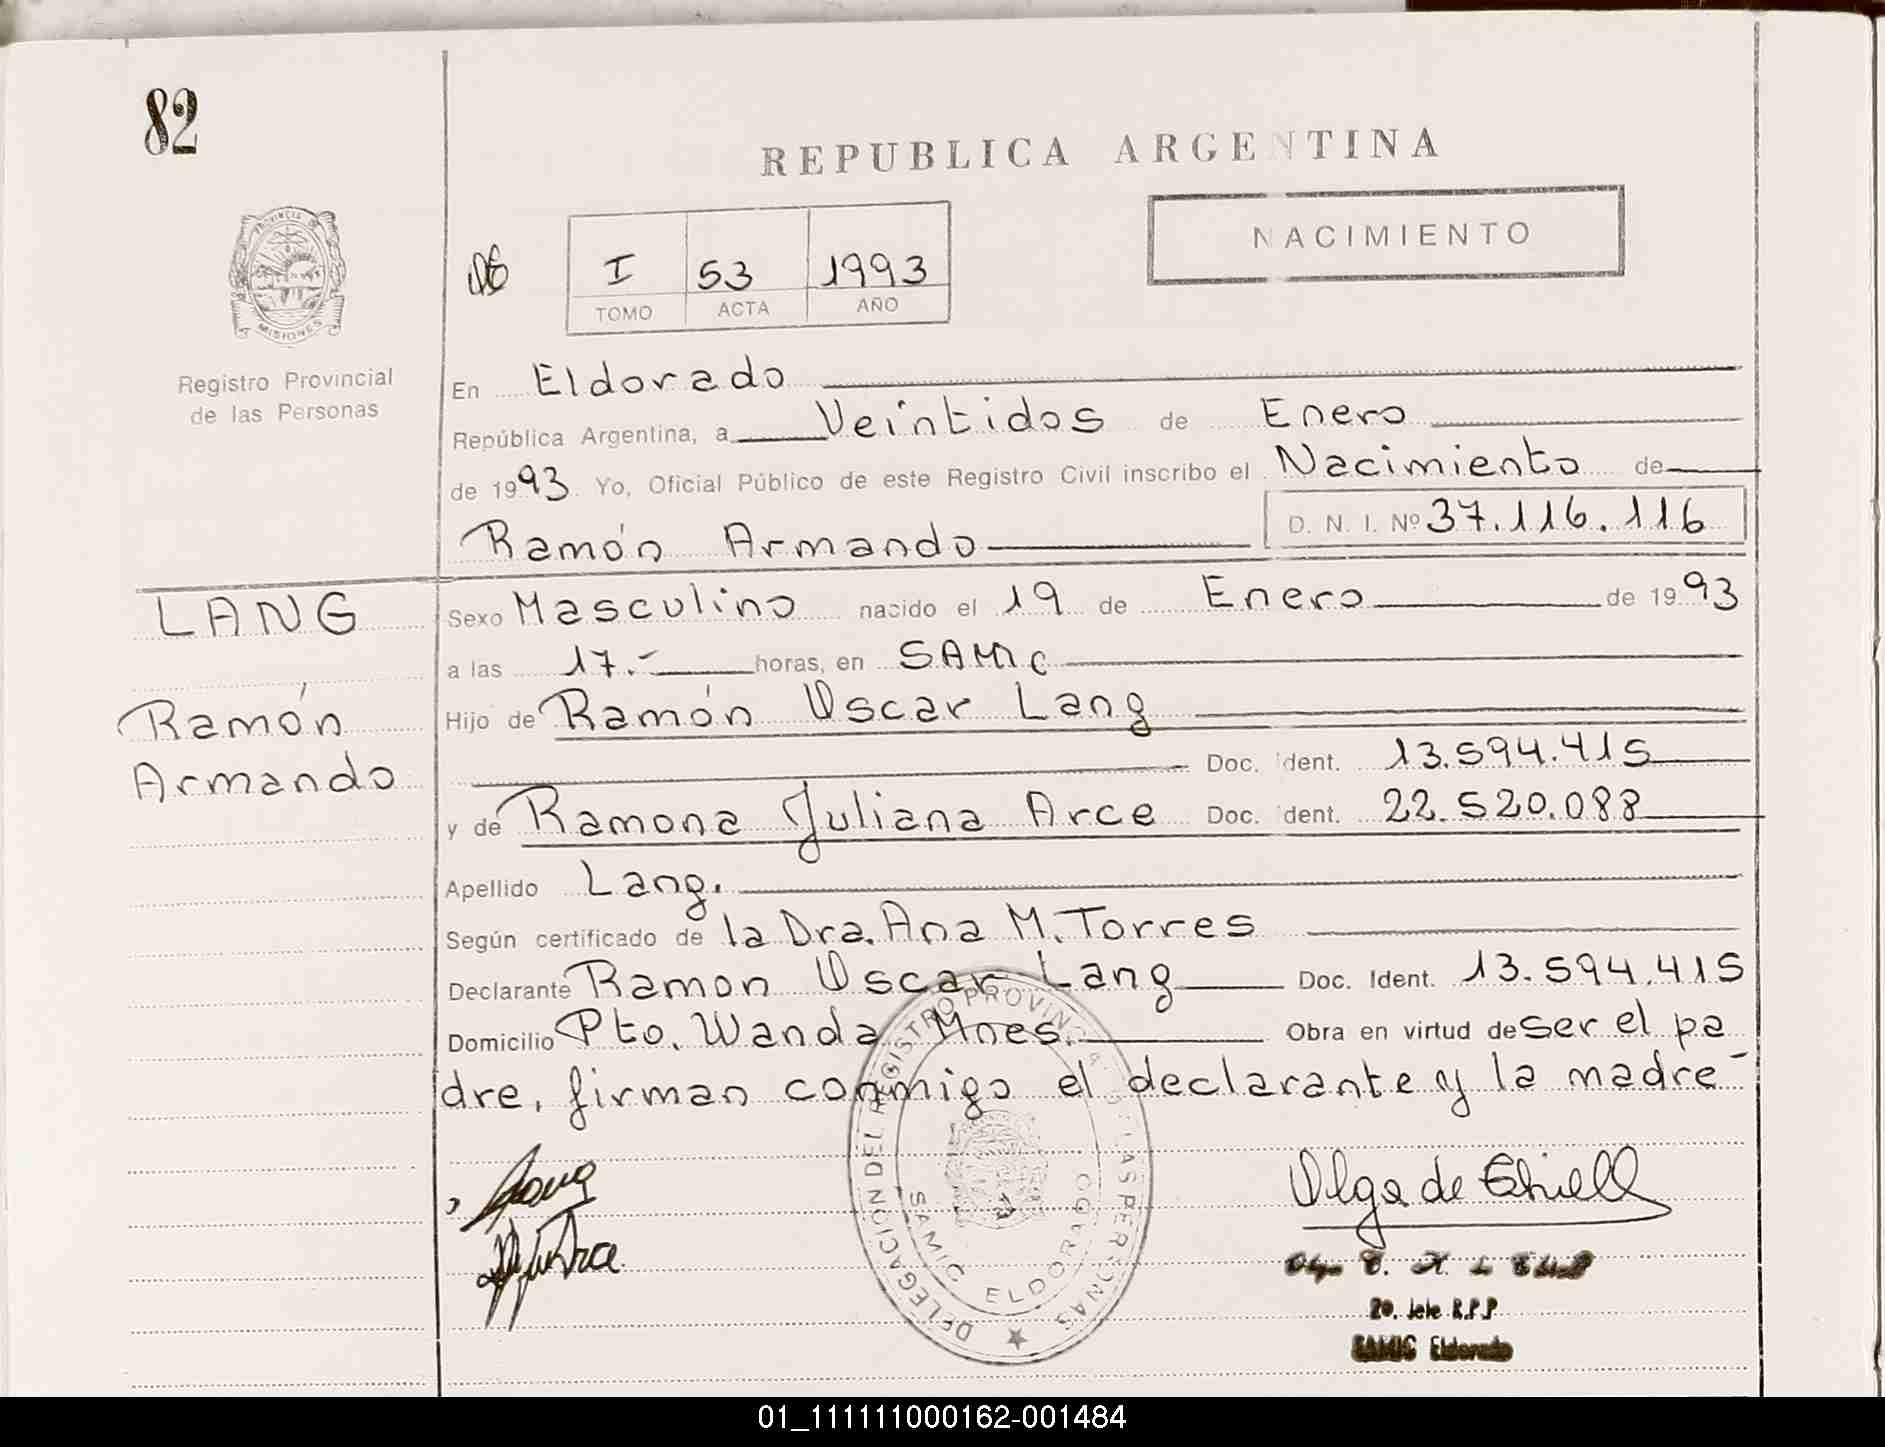 82
REPUBLICA ARGENTINA
NACIMIENTO
I 53 1993
TOMO ACTA AÑO
PROVINCIA DE
MISIONES
Registro Provincial
de las Personas
En Eldorado
República Argentina, a Veintidos de Enero
de 1993. Yo, Oficial Público de este Registro Civil inscribo el Nacimiento de
Ramón Armando D. N. I. Nº 37.116.116
LANG
Ramón
Armando
Sexo Masculino nacido el 19 de Enero de 1993
a las 17.- horas, en SAMIC
Hijo de Ramón Oscar Lang
Doc. Ident. 13.594.415
y de Ramona Juliana Arce Doc. Ident. 22.520.088
Apellido Lang.
Según certificado de la Dra. Ana M. Torres
Declarante Ramon Oscar Lang Doc. Ident. 13.594.415
Domicilio Pto. Wanda Mnes. Obra en virtud de ser el pa
dre, firman conmigo el declarante y la madre-
DELEGACION DEL REGISTRO PROVINCIAL DE LAS PERSONAS
SAMIC ELDORADO
Lang
Arce
Olga de
2o. Jefe R.P.P.
SAMIC Eldorado
01_111111000162-001484